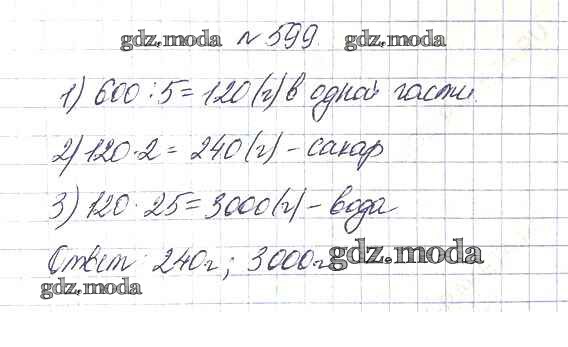 gdz.moda № 599 gdz.moda
1) 600 : 5 = 120 (г) в одной части.
2) 120 · 2 = 240 (г) - сахар
3) 120 · 25 = 3000 (г) - вода
Ответ: 240г; 3000г. gdz.moda
gdz.moda